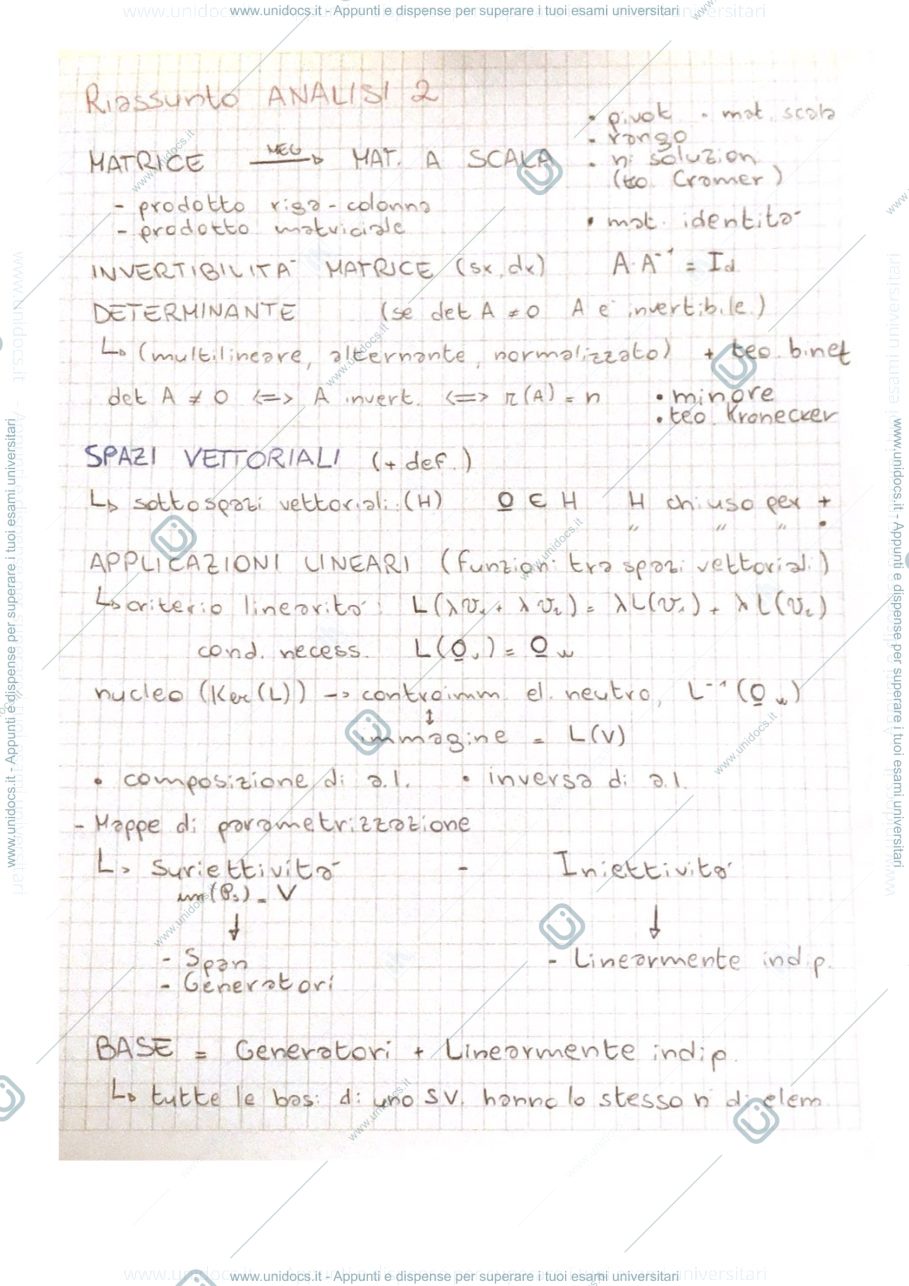 www.unidocs.it - Appunti e dispense per superare i tuoi esami universitari
Riassunto ANALISI 2
• pivot • mat. scala
MATRICE MEG → MAT. A SCALA
- rango
• n. soluzion
(teo. Cramer)
- prodotto riga-colonna
- prodotto matriciale
• mat. identità
INVERTIBILITÀ MATRICE (sx, dx) A·A⁻¹ = Id
DETERMINANTE (se det A ≠ 0 A è invertibile)
↳ (multilineare, alternante, normalizzato) + teo. binet
det A ≠ 0 <=> A invert. <=> r(A) = n
• minore
• teo. Kronecker
SPAZI VETTORIALI (+ def.)
↳ sottospazi vettoriali (H) 0 ∈ H H chiuso per +
" " " •
APPLICAZIONI LINEARI (funzioni tra spazi vettoriali)
↳ criterio linearità: L(λv₁ + λv₂) = λL(v₁) + λL(v₂)
cond. necess. L(0ᵥ) = 0w
nucleo (Ker(L)) → controimm. el. neutro, L⁻¹(0w)
↕
immagine = L(V)
• composizione di a.l. • inversa di a.l.
- Mappe di parametrizzazione
↳ Suriettività - Iniettività
im(Ps) = V
↓ ↓
- Span - Linearmente indip.
- Generatori
BASE = Generatori + Linearmente indip.
↳ tutte le basi di uno S.V. hanno lo stesso n di elem
www.unidocs.it - Appunti e dispense per superare i tuoi esami universitari